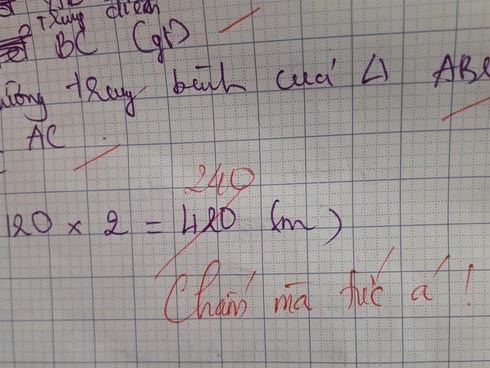 Trung điểm
BC (gt)
đường trung bình của Δ ABC
AC
240
120 x 2 = 420 (m)
Chấm mà tức á !